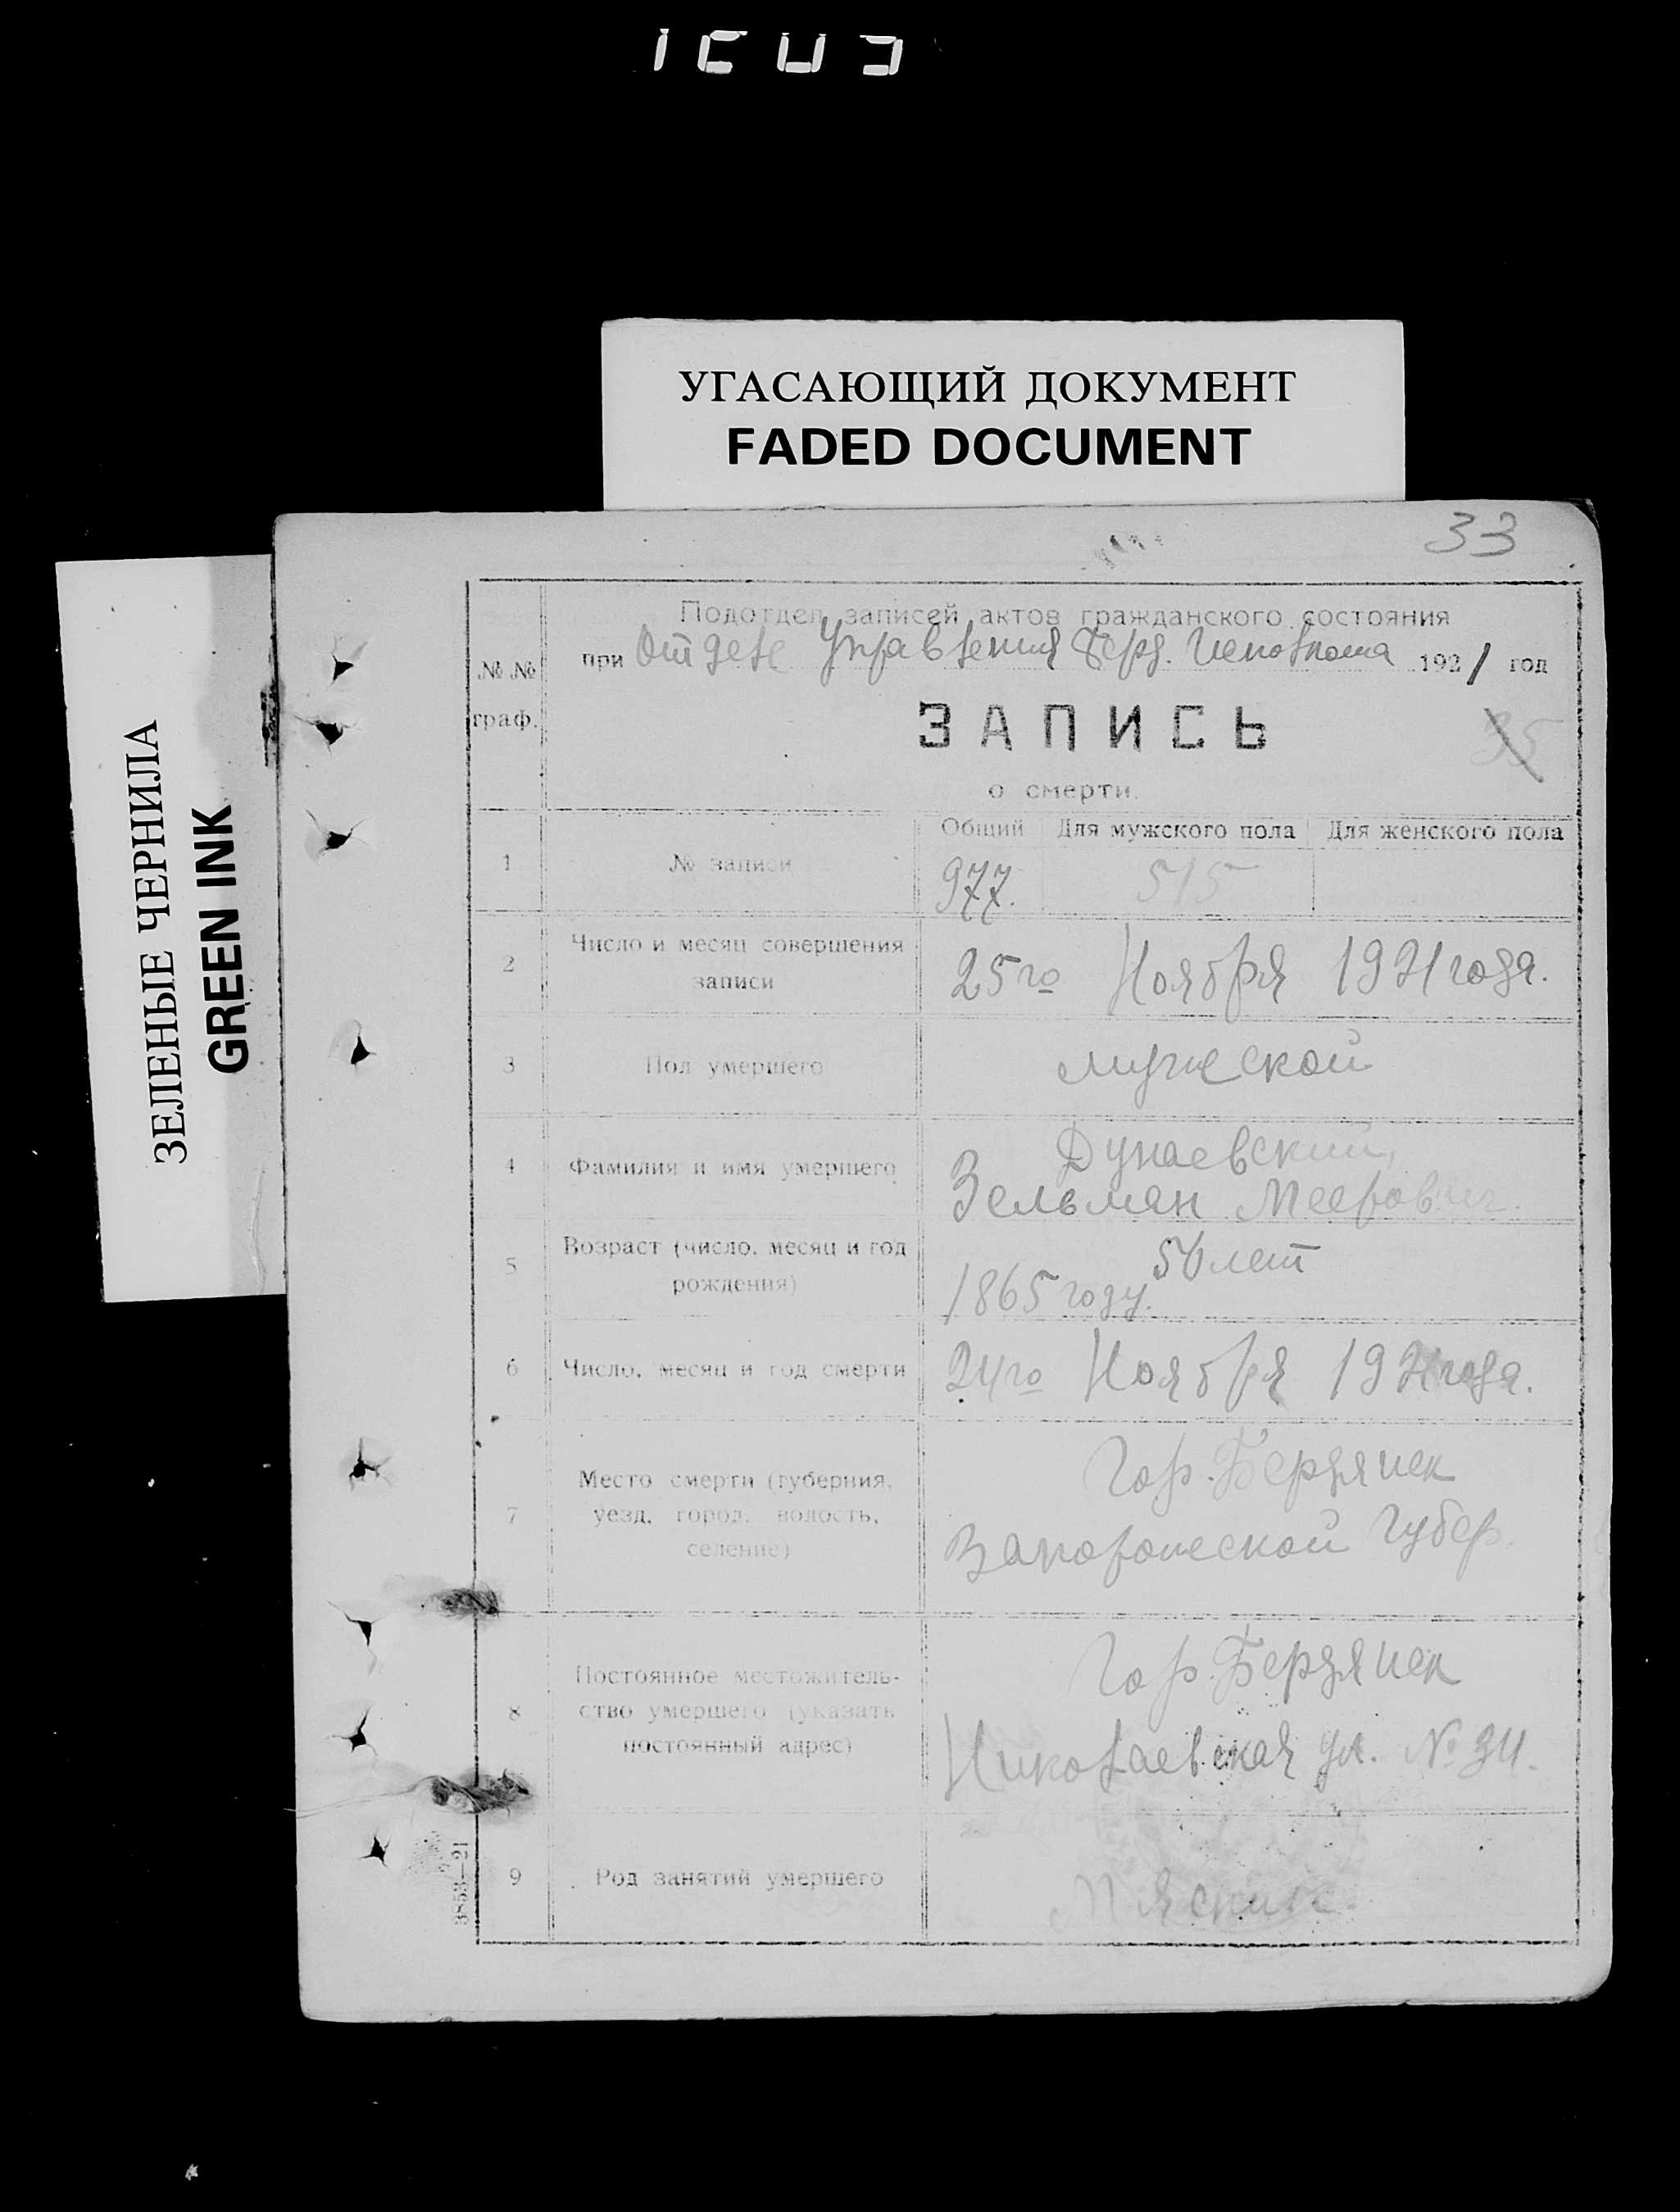 УГАСАЮЩИЙ ДОКУМЕНТ
FADED DOCUMENT
ЗЕЛЕНЫЕ ЧЕРНИЛА
GREEN INK
33
№ № граф.
Подотдел записей актов гражданского состояния
при Отделе Управления Берд. Исполкома 1921 год
ЗАПИСЬ
35
о смерти.
Общий Для мужского пола Для женского пола
1 № записи 977. 515
2 Число и месяц совершения
записи
25го Ноября 1921 года.
3 Пол умершего мужеской
4 Фамилия и имя умершего
Дунаевский,
Зельман Меерович.
5 Возраст (число, месяц и год
рождения)
56 лет
1865 году.
6 Число, месяц и год смерти 24го Ноября 1921 года.
7 Место смерти (губерния,
уезд, город, волость,
селение)
Гор. Бердянск
Запорожской Губер.
8 Постоянное местожитель-
ство умершего (указать
постоянный адрес)
Гор. Бердянск
Николаевская ул. № 34.
9 Род занятий умершего Мясник.
3853—21